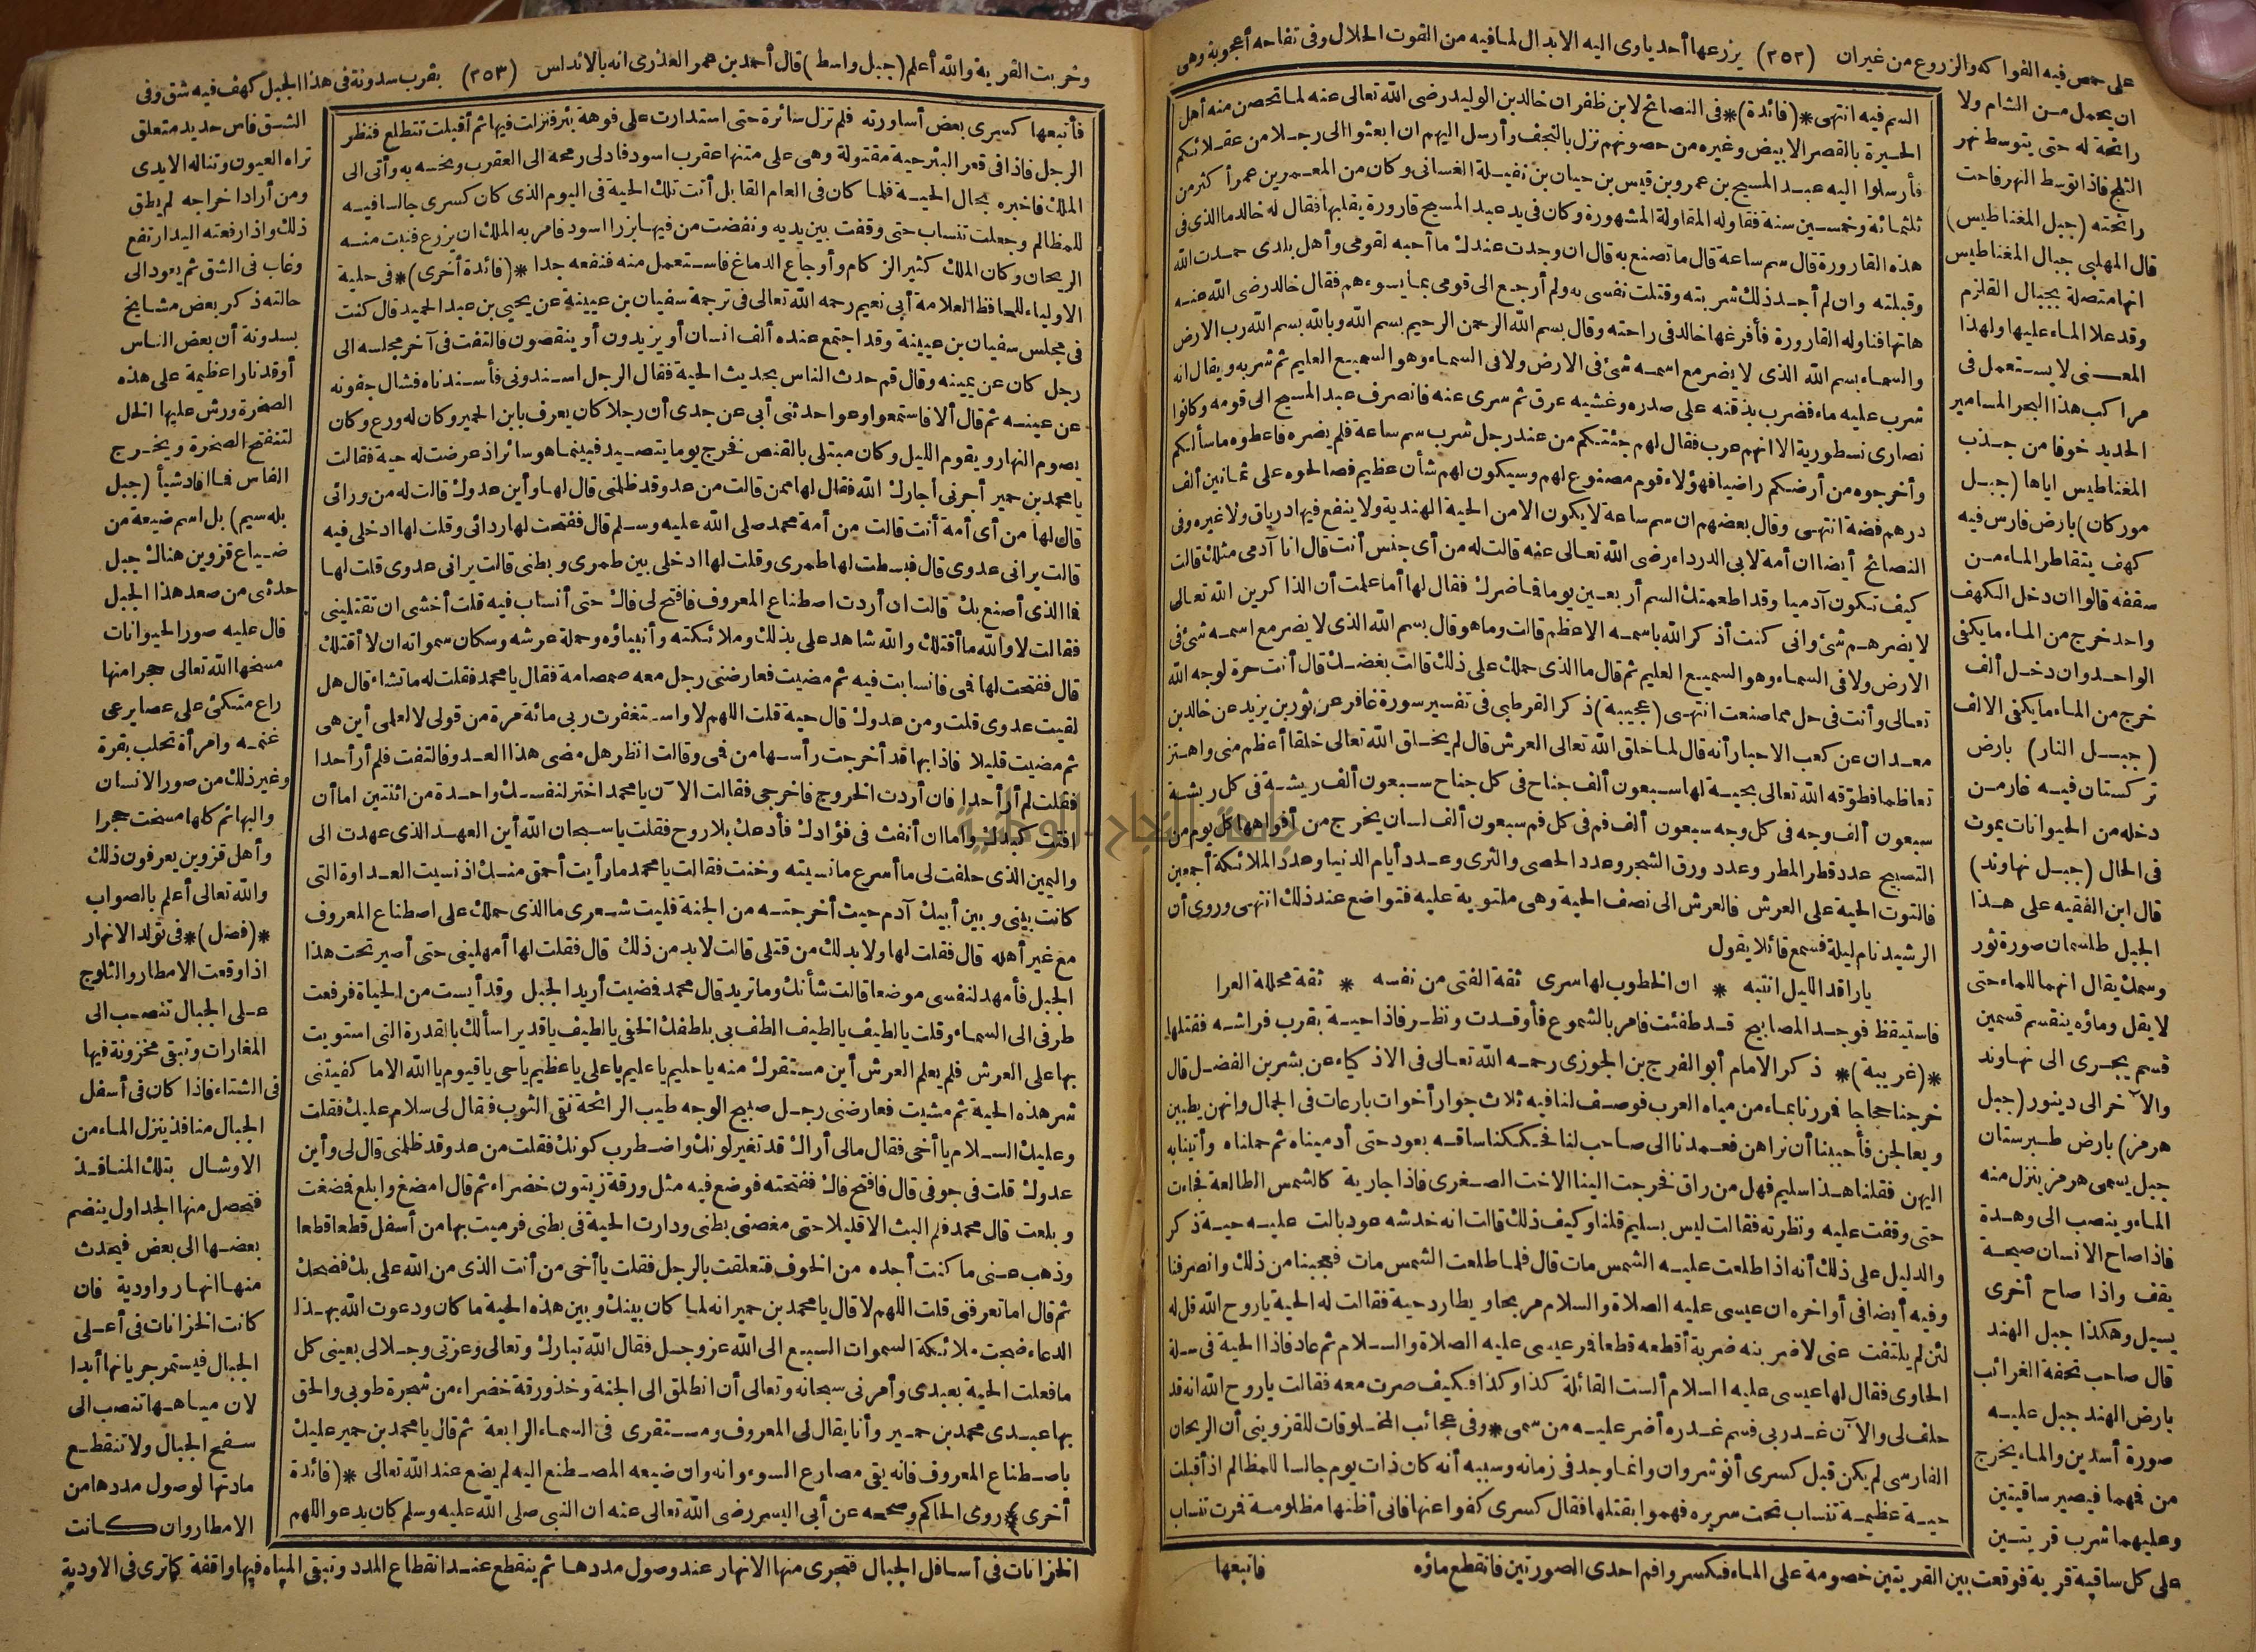 على حمص فيه الفواكه والزروع من غير ان (٢٥٢) يزرعها أحد ياوى اليه الابدال لما فيه من القوت الحلال وفى تفاحه أعجوبة وهى
ان يحمل من الشام ولا
رائحة له حتى يتوسط نهر
الثلج فاذا توسط النهر فاحت
رائحته (جبل المغناطيس)
قال المهلبى جبال المغناطيس
انها متصلة بجبال القلزم
وقد علا الماء عليها ولهذا
المعنى لا يستعمل فى
مراكب هذا البحر المسامير
الحديد خوفا من جذب
المغناطيس اياها (جبل
موركان) بارض فارس فيه
كهف يتقاطر الماء من
سقفه قالوا ان دخل الكهف
واحد خرج من الماء ما يكفى
الواحد وان دخل ألف
خرج من الماء ما يكفى الالف
(جبل النار) بارض
تركستان فيه غار من
دخله من الحيوانات يموت
فى الحال (جبل نهاوند)
قال ابن الفقيه على هذا
الجبل طلسمان صورة ثور
وسمك يقال انهما للماء حتى
لا يقل وماؤه ينقسم قسمين
قسم يجرى الى نهاوند
والآخر الى دينور (جبل
هرمز) بارض طبرستان
جبل يسمى هرمز ينزل منه
الماء وينصب الى وهدة
فاذا صاح الانسان صيحة
يقف واذا صاح أخرى
يسيل وهكذا جبل الهند
قال صاحب تحفة الغرائب
بارض الهند جبل عليه
صورة أسدين والماء يخرج
من فهما فيصير ساقيتين
وعليهما شرب قريتين
على كل ساقية قرية فوقعت بين القريتين خصومة على الماء فكسروا فم احدى الصورتين فانقطع ماؤه
السم فيه انتهى *(فائدة)* فى النصائح لابن ظفر ان خالد بن الوليد رضى الله تعالى عنه لما تحصن منه أهل
الحيرة بالقصر الابيض وغيره من حصونهم نزل بالنجف وأرسل اليهم ان ابعثوا الى رجلا من عقلائكم
فأرسلوا اليه عبد المسيح بن عمرو بن قيس بن حيان بن نفيلة الغسانى وكان من المعمرين عمرا أكثر من
ثلثمائة وخمسين سنة فقاوله المقاولة المشهورة وكان فى يد عبد المسيح قارورة يقلبها فقال له خالد ما الذى فى
هذه القارورة قال سم ساعة قال ما تصنع به قال ان وجدت عندك ما أحبه لقومى وأهل بلدى حمدت الله
وقبلته وان لم أجد ذلك شربته وقتلت نفسى به ولم أرجع الى قومى بما يسوءهم فقال خالد رضى الله عنه
هاتها فناوله القارورة فأفرغها خالد فى راحته وقال بسم الله الرحمن الرحيم بسم الله وبالله بسم الله رب الارض
والسماء بسم الله الذى لا يضر مع اسمه شئ فى الارض ولا فى السماء وهو السميع العليم ثم شربه ويقال انه
شرب عليه ماء فضرب بذقنه على صدره وغشيه عرق ثم سرى عنه فانصرف عبد المسيح الى قومه وكانوا
نصارى نسطورية الا انهم عرب فقال لهم جئتكم من عند رجل شرب سم ساعة فلم يضره فاعطوه ما سألكم
وأخرجوه من أرضكم راضيا فهؤلاء قوم مصنوع لهم وسيكون لهم شأن عظيم فصالحوه على ثمانين ألف
درهم فضة انتهى وقال بعضهم ان سم ساعة لا يكون الا من الحية الهندية ولا ينفع فيها درياق ولا غيره وفى
النصائح أيضا ان أمة لابى الدرداء رضى الله تعالى عنه قالت له من أى جنس أنت قال انا آدمى مثلك قالت
كيف تكون آدميا وقد اطعمتك السم أربعين يوما فما ضرك فقال لها أما علمت أن الذاكرين الله تعالى
لا يضرهم شئ وانى كنت أذكر الله باسمه الاعظم قالت وما هو قال بسم الله الذى لا يضر مع اسمه شئ فى
الارض ولا فى السماء وهو السميع العليم ثم قال ما الذى حملك على ذلك قالت بغضك قال أنت حرة لوجه الله
تعالى وأنت فى حل مما صنعت انتهى (عجيبة) ذكر القرطبى فى تفسير سورة غافر عن ثور بن يزيد عن خالد بن
معدان عن كعب الاحبار أنه قال لما خلق الله تعالى العرش قال لم يخلق الله تعالى خلقا أعظم منى واهتز
تعاظما فطوقه الله تعالى بحية لها سبعون ألف جناح فى كل جناح سبعون ألف ريشة فى كل ريشة
سبعون ألف وجه فى كل وجه سبعون ألف فم فى كل فم سبعون ألف لسان يخرج من أفواهها كل يوم من
التسبيح عدد قطر المطر وعدد ورق الشجر وعدد الحصى والثرى وعدد أيام الدنيا وعدد الملائكة أجمعين
فالتوت الحية على العرش فالعرش الى نصف الحية وهى ملتوية عليه فتواضع عند ذلك انتهى وروى أن
الرشيد نام ليلة فسمع قائلا يقول
يا راقد الليل انتبه * ان الخطوب لها سرى ثقة الفتى من نفسه * ثقة محللة العرا
فاستيقظ فوجد المصابيح قد طفئت فامر بالشموع فأوقدت ونظر فاذا حية بقرب فراشه فقتلها
*(غريبة)* ذكر الامام أبو الفرج بن الجوزى رحمه الله تعالى فى الاذكياء عن بشر بن الفضل قال
خرجنا حجاجا فمررنا بماء من مياه العرب فوصف لنا فيه ثلاث جوار أخوات بارعات فى الجمال وانهن يطببن
ويعالجن فأحببنا أن نراهن فعمدنا الى صاحب لنا فحككنا ساقه بعود حتى أدميناه ثم حملناه وأتينا به
اليهن فقلنا هذا سليم فهل من راق فخرجت الينا الاخت الصغرى فاذا جارية كالشمس الطالعة فجاءت
حتى وقفت عليه ونظرته فقالت ليس بسليم قلنا وكيف ذلك قالت انه خدشه عود بالت عليه حية ذكر
والدليل على ذلك أنه اذا طلعت عليه الشمس مات قال فلما طلعت الشمس مات فعجبنا من ذلك وانصرفنا
وفيه أيضا فى أواخره ان عيسى عليه الصلاة والسلام مر بحاو يطارد حية فقالت له الحية يا روح الله قل له
لئن لم يلتفت عنى لاضربنه ضربة أقطعه قطعا فمر عيسى عليه الصلاة والسلام ثم عاد فاذا الحية فى سلة
الحاوى فقال لها عيسى عليه السلام ألست القائلة كذا وكذا فكيف صرت معه فقالت يا روح الله انه قد
حلف لى والآن غدر بى فسم غدره أضر عليه من سمى * وفى عجائب المخلوقات للقزوينى أن الريحان
الفارسى لم يكن قبل كسرى أنوشروان وانما وجد فى زمانه وسببه أنه كان ذات يوم جالسا للمظالم اذ أقبلت
حية عظيمة تنساب تحت سريره فهموا بقتلها فقال كسرى كفوا عنها فانى أظنها مظلومة فمرت تنساب
فاتبعها
وخربت القرية والله أعلم (جبل واسط) قال أحمد بن عمر العذرى انه بالاندلس (٢٥٣) بقرب سدونة فى هذا الجبل كهف فيه شق وفى
فأتبعها كسرى بعض أساورته فلم تزل سائرة حتى استدارت على فوهة بئر فنزلت فيها ثم أقبلت تتطلع فنظر
الرجل فاذا فى قعر البئر حية مقتولة وهى على متنها عقرب اسود فادلى رمحه الى العقرب ونخسه به وأتى الى
الملك فاخبره بحال الحية فلما كان فى العام القابل أتت تلك الحية فى اليوم الذى كان كسرى جالسا فيه
للمظالم وجعلت تنساب حتى وقفت بين يديه ونفضت من فيها بزرا اسود فامر به الملك ان يزرع فنبت منه
الريحان وكان الملك كثير الزكام وأوجاع الدماغ فاستعمل منه فنفعه جدا *(فائدة أخرى)* فى حلية
الاولياء للحافظ العلامة أبى نعيم رحمه الله تعالى فى ترجمة سفيان بن عيينة عن يحيى بن عبد الحميد قال كنت
فى مجلس سفيان بن عيينة وقد اجتمع عنده ألف انسان أو يزيدون أو ينقصون فالتفت فى آخر مجلسه الى
رجل كان عن يمينه وقال قم حدث الناس بحديث الحية فقال الرجل اسندونى فأسندناه فشال جفونه
عن عينيه ثم قال ألا فاستمعوا وعوا حدثنى أبى عن جدى أن رجلا كان يعرف بابن الحمير وكان له ورع وكان
يصوم النهار ويقوم الليل وكان مبتلى بالقنص فخرج يوما يتصيد فبينما هو سائر اذ عرضت له حية فقالت
يا محمد بن حمير أجرنى أجارك الله فقال لها ممن قالت من عدو قد ظلمنى قال لها وأين عدوك قالت له من ورائى
قال لها من أى أمة أنت قالت من أمة محمد صلى الله عليه وسلم قال ففتحت لها ردائى وقلت لها ادخلى فيه
قالت يرانى عدوى قال فبسطت لها طمرى وقلت لها ادخلى بين طمرى وبطنى قالت يرانى عدوى قلت لها
فما الذى أصنع بك قالت ان أردت اصطناع المعروف فافتح لى فاك حتى أنساب فيه قلت أخشى ان تقتلينى
فقالت لا والله ما أقتلك والله شاهد على بذلك وملائكته وأنبياؤه وحملة عرشه وسكان سمواته ان لا أقتلك
قال ففتحت لها فمى فانسابت فيه ثم مضيت فعارضنى رجل معه صمصامة فقال يا محمد فقلت له ما تشاء قال هل
لقيت عدوى قلت ومن عدوك قال حية قلت اللهم لا واستغفرت ربى مائة مرة من قولى لا لعلمى أين هى
ثم مضيت قليلا فاذا بها قد أخرجت رأسها من فمى وقالت انظر هل مضى هذا العدو فالتفت فلم أر أحدا
فقلت لم أر أحدا فان أردت الخروج فاخرجى فقالت الآن يا محمد اختر لنفسك واحدة من اثنتين اما أن
افتت كبدك واما ان أنفث فى فؤادك فأدعك بلا روح فقلت يا سبحان الله أين العهد الذى عهدت الى
واليمين الذى حلفت لى ما أسرع ما نسيته وخنت فقالت يا محمد ما رأيت أحمق منك اذ نسيت العداوة التى
كانت بينى وبين أبيك آدم حيث أخرجته من الجنة فليت شعرى ما الذى حملك على اصطناع المعروف
مع غير أهله قال فقلت لها ولا بد لك من قتلى قالت لا بد من ذلك قال فقلت لها أمهلينى حتى أصير تحت هذا
الجبل فأمهد لنفسى موضعا قالت شأنك وما تريد قال محمد فمضيت أريد الجبل وقد أيست من الحياة فرفعت
طرفى الى السماء وقلت يا لطيف يا لطيف الطف بى بلطفك الخفى يا لطيف يا قدير اسألك بالقدرة التى استويت
بها على العرش فلم يعلم العرش أين مستقرك منه يا حليم يا عليم يا على يا عظيم يا حى يا قيوم يا الله الا ما كفيتنى
شر هذه الحية ثم مشيت فعارضنى رجل صبيح الوجه طيب الرائحة نقى الثوب فقال لى سلام عليك فقلت
وعليك السلام يا أخى فقال مالى أراك قد تغير لونك واضطرب كونك فقلت من عدو قد ظلمنى قال لى وأين
عدوك قلت فى جوفى قال فافتح فاك ففتحته فوضع فيه مثل ورقة زيتون خضراء ثم قال امضغ وابلع فمضغت
وبلعت قال محمد فلم البث الا قليلا حتى مغصنى بطنى ودارت الحية فى بطنى فرميت بها من أسفل قطعا قطعا
وذهب عنى ما كنت أجده من الخوف فتعلقت بالرجل فقلت يا أخى من أنت الذى من الله على بك فضحك
ثم قال اما تعرفنى قلت اللهم لا قال يا محمد بن حمير انه لما كان بينك وبين هذه الحية ما كان ودعوت الله بهذا
الدعاء ضجت ملائكة السموات السبع الى الله عز وجل فقال الله تبارك وتعالى وعزتى وجلالى بعينى كل
ما فعلت الحية بعبدى وأمرنى سبحانه وتعالى أن انطلق الى الجنة وخذ ورقة خضراء من شجرة طوبى والحق
بها عبدى محمد بن حمير وأنا يقال لى المعروف ومستقرى فى السماء الرابعة ثم قال يا محمد بن حمير عليك
باصطناع المعروف فانه يقى مصارع السوء وانه وان ضيعه المصطنع اليه لم يضع عند الله تعالى *(فائدة
أخرى)* روى الحاكم وصححه عن أبى اليسر رضى الله تعالى عنه ان النبى صلى الله عليه وسلم كان يدعو اللهم
الشق فاس حديد متعلق
تراه العيون وتناله الايدى
ومن أراد اخراجه لم يطق
ذلك واذا رفعته اليد ارتفع
وغاب فى الشق ثم يعود الى
حالته ذكر بعض مشايخ
بسدونة أن بعض الناس
أوقد نارا عظيمة على هذه
الصخرة ورش عليها الخل
لتنفتح الصخرة ويخرج
الفاس فما افاد شيأ (جبل
بله سيم) بل اسم ضيعة من
ضياع قزوين هناك جبل
حدثنى من صعد هذا الجبل
قال عليه صور الحيوانات
مسخها الله تعالى حجرا منها
راع متكئ على عصا يرعى
غنمه وامرأة تحلب بقرة
وغير ذلك من صور الانسان
والبهائم كلها مسخت حجرا
وأهل قزوين يعرفون ذلك
والله تعالى أعلم بالصواب
*(فصل)* فى تولد الانهار
اذا وقعت الامطار والثلوج
على الجبال تنصب الى
المغارات وتبقى مخزونة فيها
فى الشتاء فاذا كان فى أسفل
الجبال منافذ ينزل الماء من
الاوشال بتلك المنافذ
فتحصل منها الجداول ينضم
بعضها الى بعض فيحدث
منها انهار وأودية فان
كانت الخزانات فى أعلى
الجبال فيستمر جريانها أبدا
لان مياهها تنصب الى
سفح الجبال ولا تنقطع
مادتها لوصول مددها من
الامطار وان كانت
الخزانات فى أسافل الجبال فتجرى منها الانهار عند وصول مددها ثم ينقطع عند انقطاع المدد وتبقى المياه فيها واقفة كما ترى فى الاودية
جامعة النجاح الوطنية